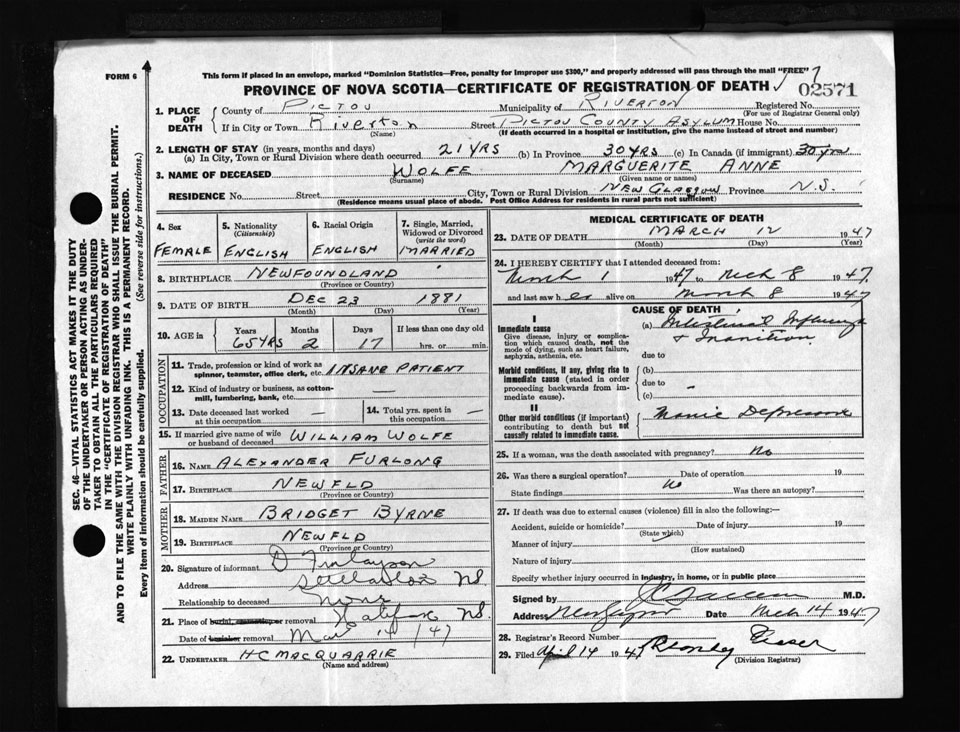 FORM 6
This form if placed in an envelope, marked "Dominion Statistics—Free, penalty for improper use $300," and properly addressed will pass through the mail "FREE"
PROVINCE OF NOVA SCOTIA—CERTIFICATE OF REGISTRATION OF DEATH
02571
1. PLACE OF DEATH
County of PICTOU Municipality of RIVERTON Registered No.
(For use of Registrar General only)
If in City or Town Riverton Street PICTOU COUNTY ASYLUM House No.
(Name) (If death occurred in a hospital or institution, give the name instead of street and number)
2. LENGTH OF STAY (in years, months and days)
(a) In City, Town or Rural Division where death occurred 21 YRS (b) In Province 30 YRS (c) In Canada (if immigrant) 30 yrs
3. NAME OF DECEASED WOLFE MARGUERITE ANNE
(Surname) (Given name or names)
RESIDENCE No. Street City, Town or Rural Division NEW GLASGOW Province N.S.
(Residence means usual place of abode. Post Office Address for residents in rural parts not sufficient)
4. Sex
FEMALE
5. Nationality
(Citizenship)
ENGLISH
6. Racial Origin
ENGLISH
7. Single, Married, Widowed or Divorced
(write the word)
MARRIED
8. BIRTHPLACE NEWFOUNDLAND
(Province or Country)
9. DATE OF BIRTH DEC 23 1881
(Month) (Day) (Year)
10. AGE in Years Months Days If less than one day old
65 YRS 2 17 hrs. or min.
OCCUPATION
11. Trade, profession or kind of work as spinner, teamster, office clerk, etc. INSANE PATIENT
12. Kind of industry or business, as cotton-mill, lumbering, bank, etc. —
13. Date deceased last worked at this occupation —
14. Total yrs. spent in this occupation —
15. If married give name of wife or husband of deceased WILLIAM WOLFE
FATHER
16. NAME ALEXANDER FURLONG
17. BIRTHPLACE NEWFLD
(Province or Country)
MOTHER
18. MAIDEN NAME BRIDGET BYRNE
19. BIRTHPLACE NEWFLD
(Province or Country)
20. Signature of informant D Finlayson
Address NS
Relationship to deceased None
21. Place of burial, cremation or removal Halifax NS.
Date of burial or removal Mar 14/47
22. UNDERTAKER H C MACQUARRIE
(Name and address)
MEDICAL CERTIFICATE OF DEATH
23. DATE OF DEATH MARCH 12 1947
(Month) (Day) (Year)
24. I HEREBY CERTIFY that I attended deceased from:
March 1 1947 to Mch 8 1947
and last saw her alive on March 8 1947
CAUSE OF DEATH
I
Immediate cause
Give disease, injury or complication which caused death, not the mode of dying, such as heart failure, asphyxia, asthenia, etc.
(a) Intestinal Influenza
+ Inanition
due to
Morbid conditions, if any, giving rise to immediate cause (stated in order proceeding backwards from immediate cause).
(b)
due to
(c)
II
Other morbid conditions (if important) contributing to death but not causally related to immediate cause.
Manic Depressive
25. If a woman, was the death associated with pregnancy? No
26. Was there a surgical operation? Date of operation 19
State findings No Was there an autopsy?
27. If death was due to external causes (violence) fill in also the following:—
Accident, suicide or homicide? Date of injury 19
(State which)
Manner of injury
(How sustained)
Nature of injury
Specify whether injury occurred in industry, in home, or in public place
Signed by M.D.
Address New Glasgow Date Mch 14 1947
28. Registrar's Record Number
29. Filed April 14 1947 Fraser
(Division Registrar)
SEC. 46—VITAL STATISTICS ACT MAKES IT THE DUTY
OF THE UNDERTAKER OR PERSON ACTING AS UNDER-
TAKER TO OBTAIN ALL THE PARTICULARS REQUIRED
IN THE "CERTIFICATE OF REGISTRATION OF DEATH"
AND TO FILE THE SAME WITH THE DIVISION REGISTRAR WHO SHALL ISSUE THE BURIAL PERMIT.
WRITE PLAINLY WITH UNFADING INK. THIS IS A PERMANENT RECORD.
Every item of information should be carefully supplied. (See reverse side for instructions.)